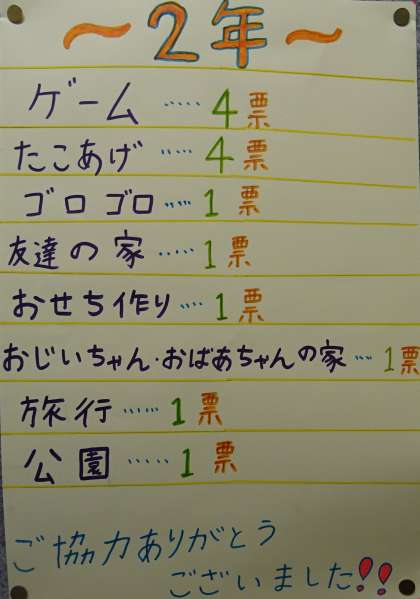 ～2年～
ゲーム ‥‥ 4票
たこあげ ‥‥ 4票
ゴロゴロ ‥‥ 1票
友達の家 ‥‥ 1票
おせち作り ‥‥ 1票
おじいちゃん・おばあちゃんの家 ‥‥ 1票
旅行 ‥‥‥ 1票
公園 ‥‥‥ 1票
ご協力ありがとう
ございました!!